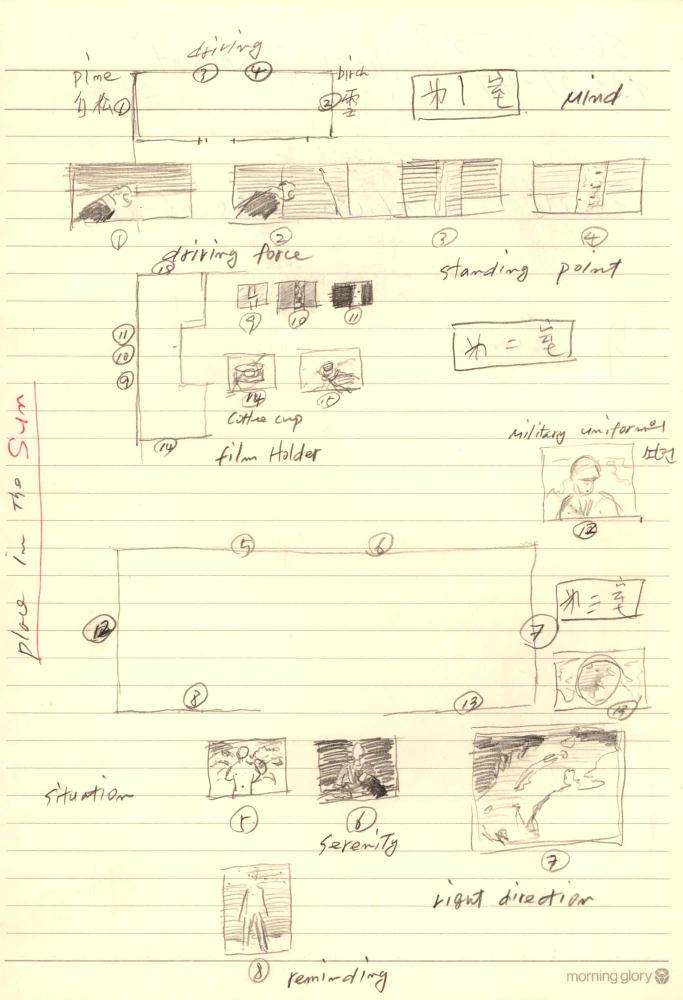 driving
pine ③ ④ birch
① ②
Mind
① ② ③ ④
driving force
standing point
⑨ ⑩ ⑪
⑪
⑩
⑨
⑭ ⑮
Coffee cup
⑭
film Holder
military uniform의
⑫
Place in the Sun
⑤ ⑥
⑫ ⑦
⑧ ⑬
⑬
situation
⑤ ⑥
serenity
⑦
right direction
⑧ reminding
morning glory